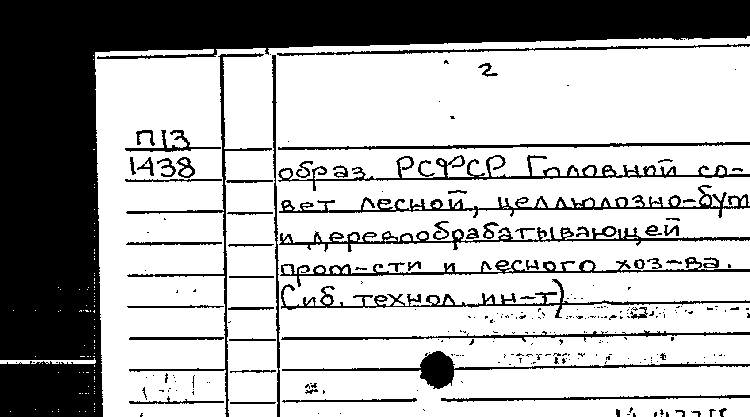 2
П13
1438
образ. РСФСР Головной со-
вет лесной, целлюлозно-бум
и деревообрабатывающей
пром-сти и лесного хоз-ва.
Сиб. технол. ин-т)